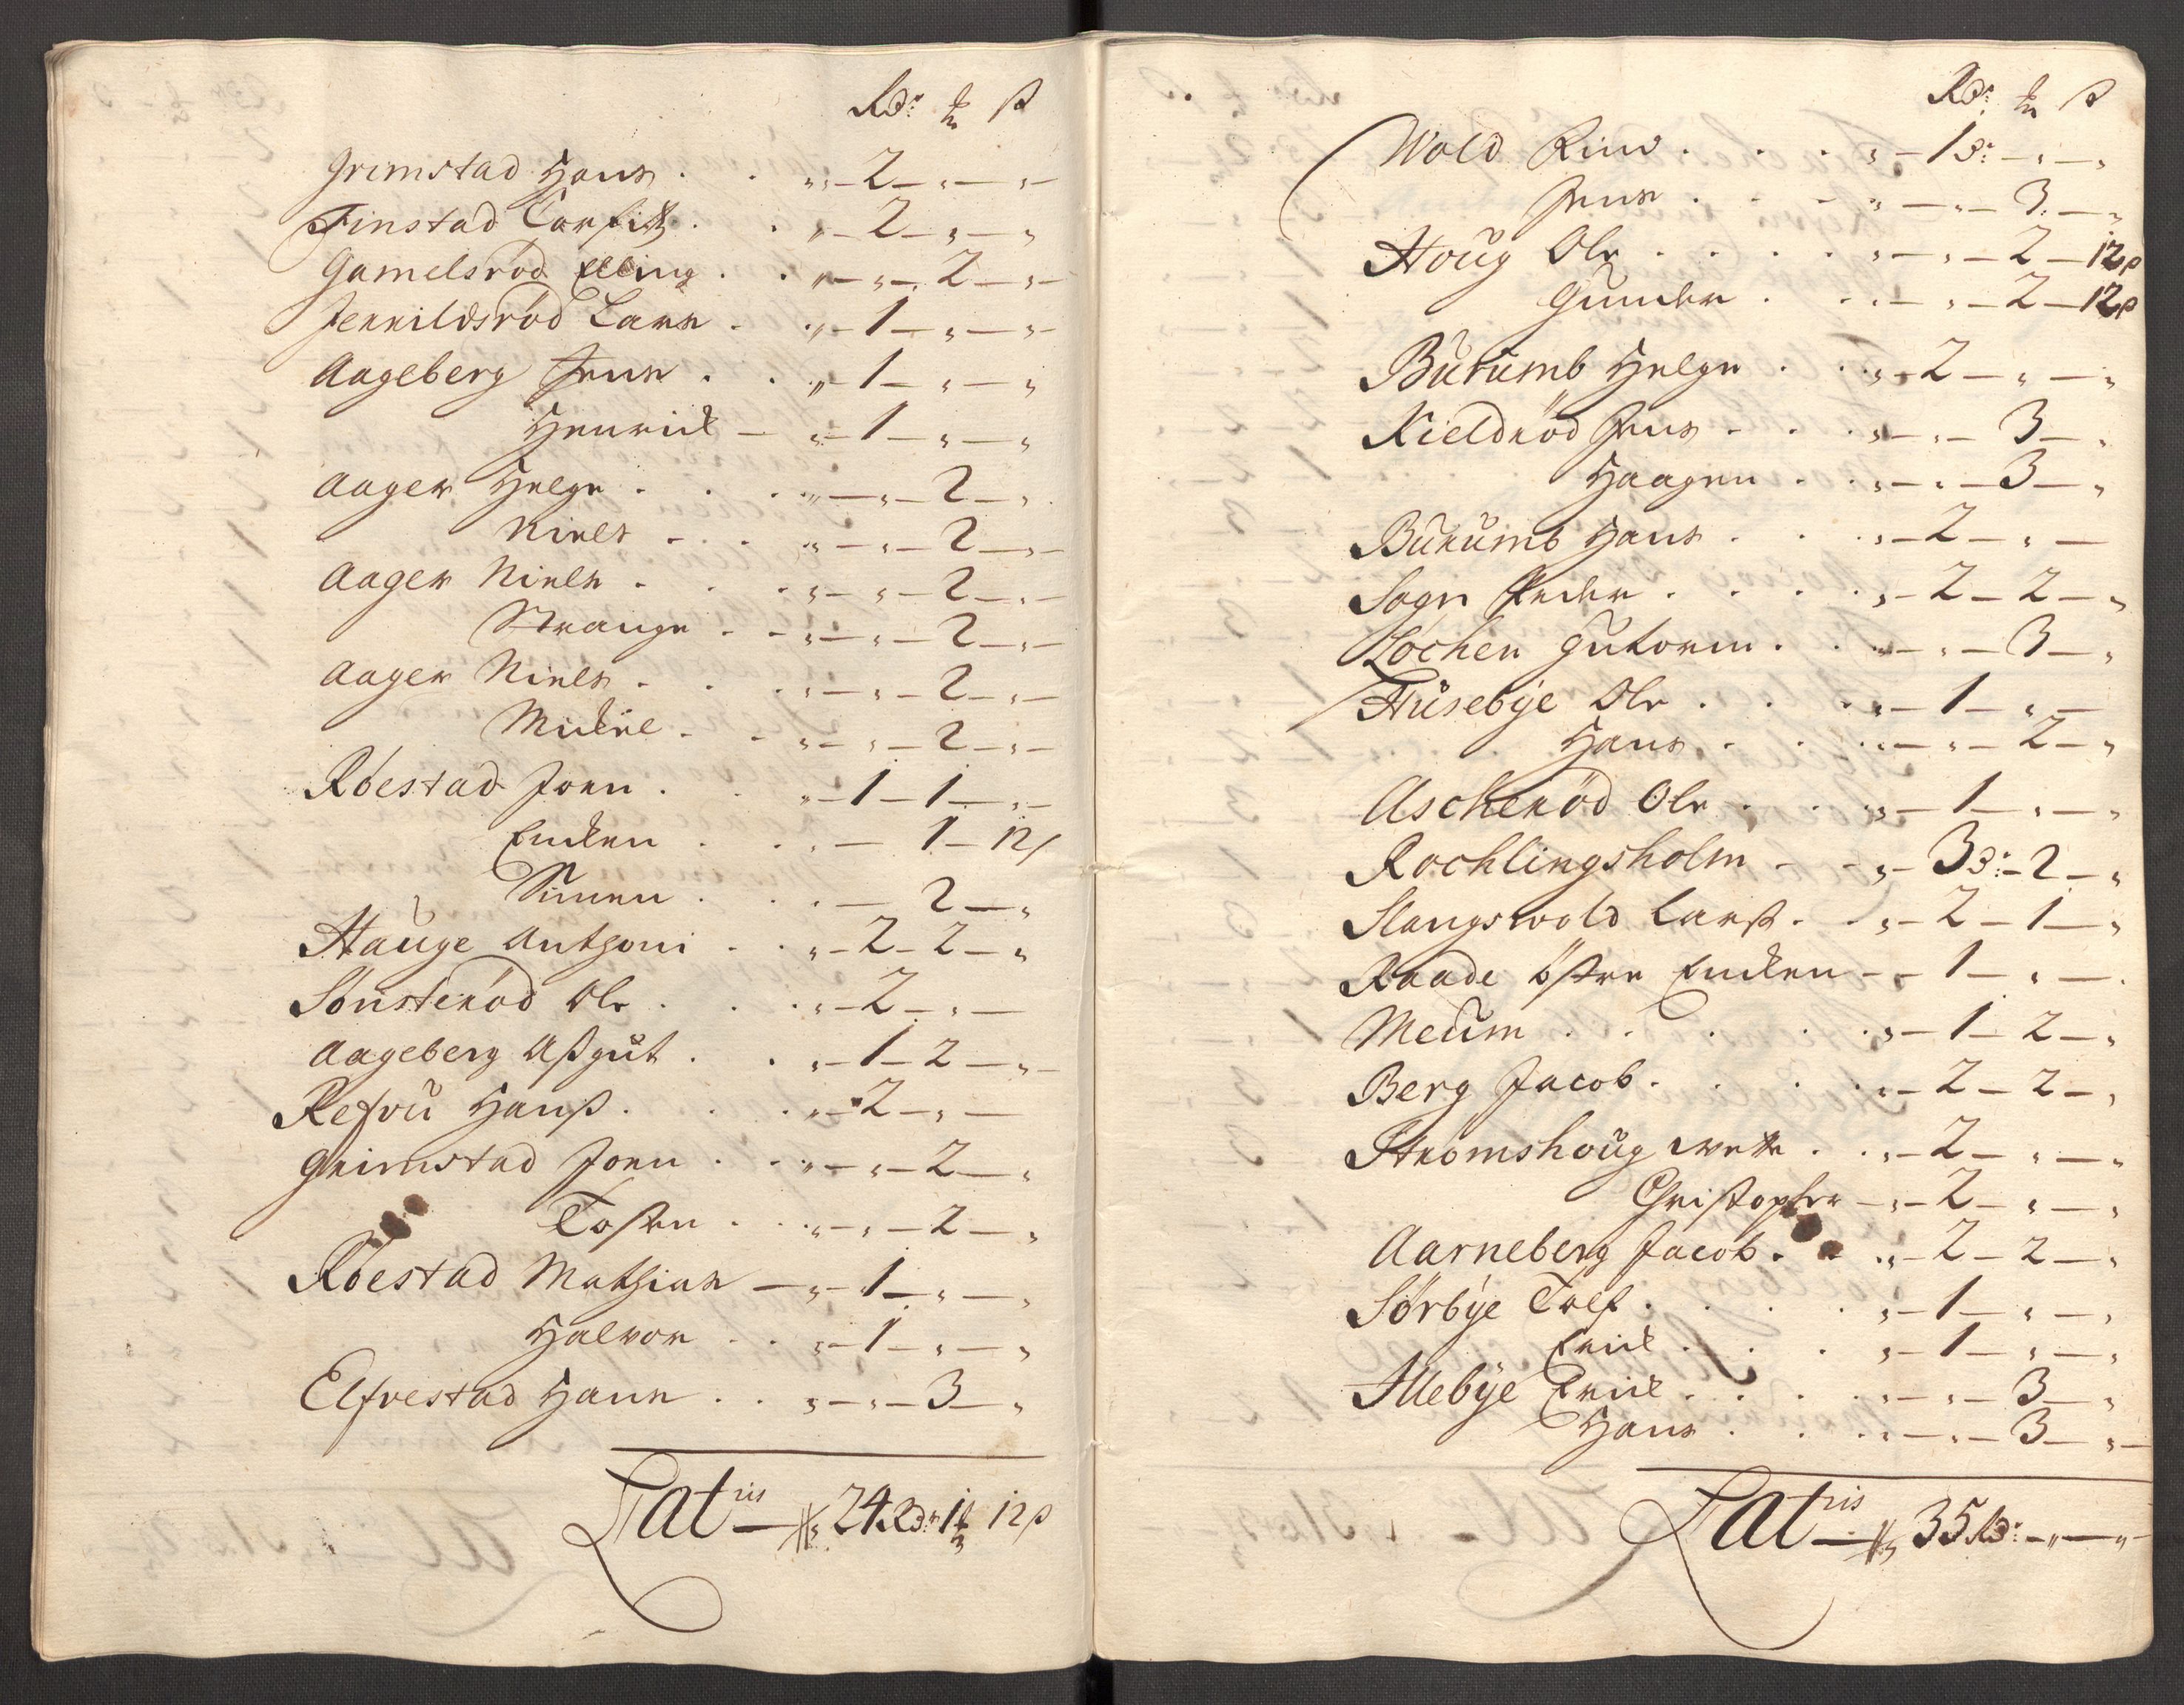 Rdr: ₰ ß
Grimstad Hans . . „ – 2 – „ – „ –
Finstad Torfild . . „ – 2 – „ – „
Gamelsröd Elling . . „ – „ – 2 – „ –
Jennildsröd Lars . . „ – 1 – „ – „ –
Aageberg Jens . . „ – 1 – „ – „
Henrich – „ – 1 – „ – „
Aager Helge . . . „ – „ – 2 – „
Niels . . . „ – „ – 2 – „ –
Aager Niels . . . „ – „ – 2 – „ –
Strange . . „ – „ – 2 – „ –
Aager Niels . . . „ – „ – 2 – „ –
Michel . . „ – „ – 2 – „ –
Röestad Joen . . „ – 1 – 1 – „ –
Encken . . „ – 1 – 12 ß
Simen . . . – 2 – „
Hauge Anthoni . . „ – 2 – 2 – „
Sönsteröd Ole . . . „ – 2 – „ –
Aageberg Assgut . . „ – 1 – 2 – „ –
Refou Hanß . . . „ – 2 – „ –
Grimstad Joen . . „ – „ – 2 – „
Tosten . . . „ – „ – 2 – „
Röestad Mathias – „ – 1 – „ – „
Halvor . . „ – 1 – „ – „
Elfvestad Hans . . „ – „ – 3 – „
Lat ris – 24 Rdr: 1 12 ß
Rdr: ₰ ß
Wold . . . „ – 1 3: – „ – „
Jens . . . „ – „ – 3 – „
Houg Ole . . . . „ – „ – 2 – 12 ß
Gunder . . „ – „ – 2 – 12 ß
Burumb Helge . . „ – 2 – „ – „
Kieldröd Jens . . . „ – „ – 3 – „
Haagen . . „ – „ – 3 – „
Burumb Hans . . . „ – 2 – „ –
Sogn Peder . . . . „ – 2 – 2 – „
Löchen Gutorm . . „ – „ – 3 – „
Husebye Ole . . . „ – 1 – „ –
Hans . . . „ – „ – 2 – „
Ascheröd Ole . . . „ – 1 – „ – „
Rochlingsholm . . „ – 3 3: – 2 – „
Slangswold Larß . . „ – 2 – 1 – „
Raade östre Encken – – 1 – „ –
Meum . . . . . „ – 1 – 2 – „
Berg Jacob . . . . „ – 2 – 2 – „
Stromshoug . . „ – 2 – „ – „
Christopher – „ – 2 – „ – „
Aarneberg Jacob . . „ – 2 – 2 – „
Sörbye Tolf . . . . „ – 1 – „ – „
Erick . . . „ – 1 – „ – „
Illebye Erick . . . . „ – „ – 3 – „
Hans . . . „ – „ – 3 – „ –
Lat ris – 35 Rdr: – „ – „ –